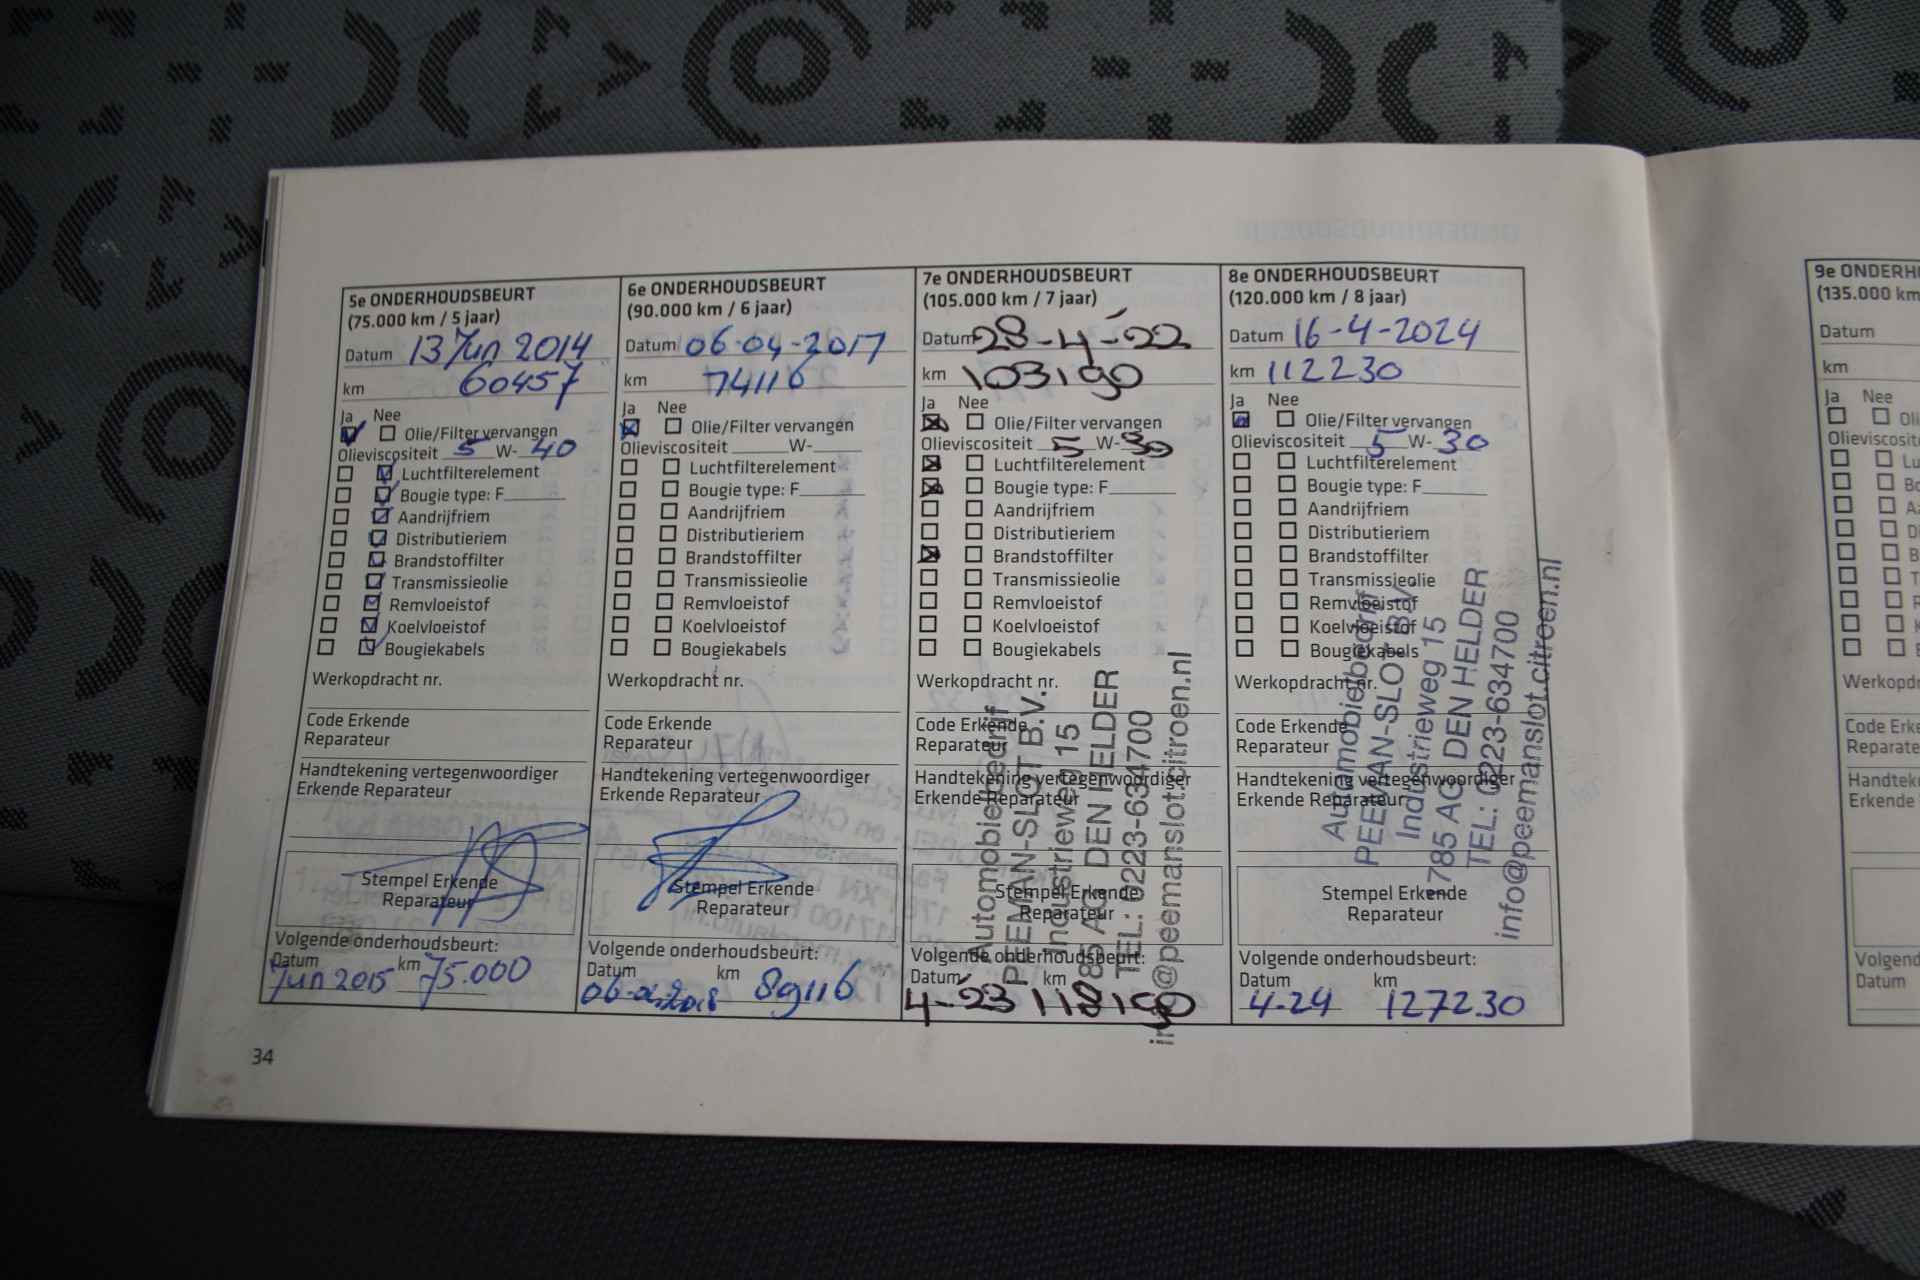 5e ONDERHOUDSBEURT
(75.000 km / 5 jaar)
Datum 13 Jun 2014
km 60457
Ja Nee
Olie/Filter vervangen
Olieviscositeit 5 W- 40
Luchtfilterelement
Bougie type: F
Aandrijfriem
Distributieriem
Brandstoffilter
Transmissieolie
Remvloeistof
Koelvloeistof
Bougiekabels
Werkopdracht nr.
Code Erkende
Reparateur
Handtekening vertegenwoordiger
Erkende Reparateur
Stempel Erkende
Reparateur
Volgende onderhoudsbeurt:
Datum km
Jun 2015 75.000
6e ONDERHOUDSBEURT
(90.000 km / 6 jaar)
Datum 06-04-2017
km 74116
Ja Nee
Olie/Filter vervangen
Olieviscositeit W-
Luchtfilterelement
Bougie type: F
Aandrijfriem
Distributieriem
Brandstoffilter
Transmissieolie
Remvloeistof
Koelvloeistof
Bougiekabels
Werkopdracht nr.
Code Erkende
Reparateur
Handtekening vertegenwoordiger
Erkende Reparateur
Stempel Erkende
Reparateur
Volgende onderhoudsbeurt:
Datum km
89116
7e ONDERHOUDSBEURT
(105.000 km / 7 jaar)
Datum 28-4-'22
km 103190
Ja Nee
Olie/Filter vervangen
Olieviscositeit 5 W-30
Luchtfilterelement
Bougie type: F
Aandrijfriem
Distributieriem
Brandstoffilter
Transmissieolie
Remvloeistof
Koelvloeistof
Bougiekabels
Werkopdracht nr.
Code Erkende
Reparateur
Handtekening vertegenwoordiger
Erkende Reparateur
Stempel Erkende
Reparateur
Volgende onderhoudsbeurt:
Datum km
4-'23 118190
Automobielbedrijf
PEEMAN-SLOT B.V.
Industrieweg 15
1785 AG DEN HELDER
TEL: 0223-634700
info@peemanslot.citroen.nl
8e ONDERHOUDSBEURT
(120.000 km / 8 jaar)
Datum 16-4-2024
km 112230
Ja Nee
Olie/Filter vervangen
Olieviscositeit 5 W- 30
Luchtfilterelement
Bougie type: F
Aandrijfriem
Distributieriem
Brandstoffilter
Transmissieolie
Remvloeistof
Koelvloeistof
Bougiekabels
Werkopdracht nr.
Code Erkende
Reparateur
Handtekening vertegenwoordiger
Erkende Reparateur
Stempel Erkende
Reparateur
Volgende onderhoudsbeurt:
Datum km
4-24 127230
Automobielbedrijf
PEEMAN-SLOT B.V.
Industrieweg 15
1785 AG DEN HELDER
TEL: 0223-634700
info@peemanslot.citroen.nl
9e ONDERH
(135.000 km
Datum
km
Ja Nee
Oli
Olieviscosite
Lu
Bo
Werkopdr
Code Erke
Reparate
Handteke
Erkende
Volgend
Datum
34